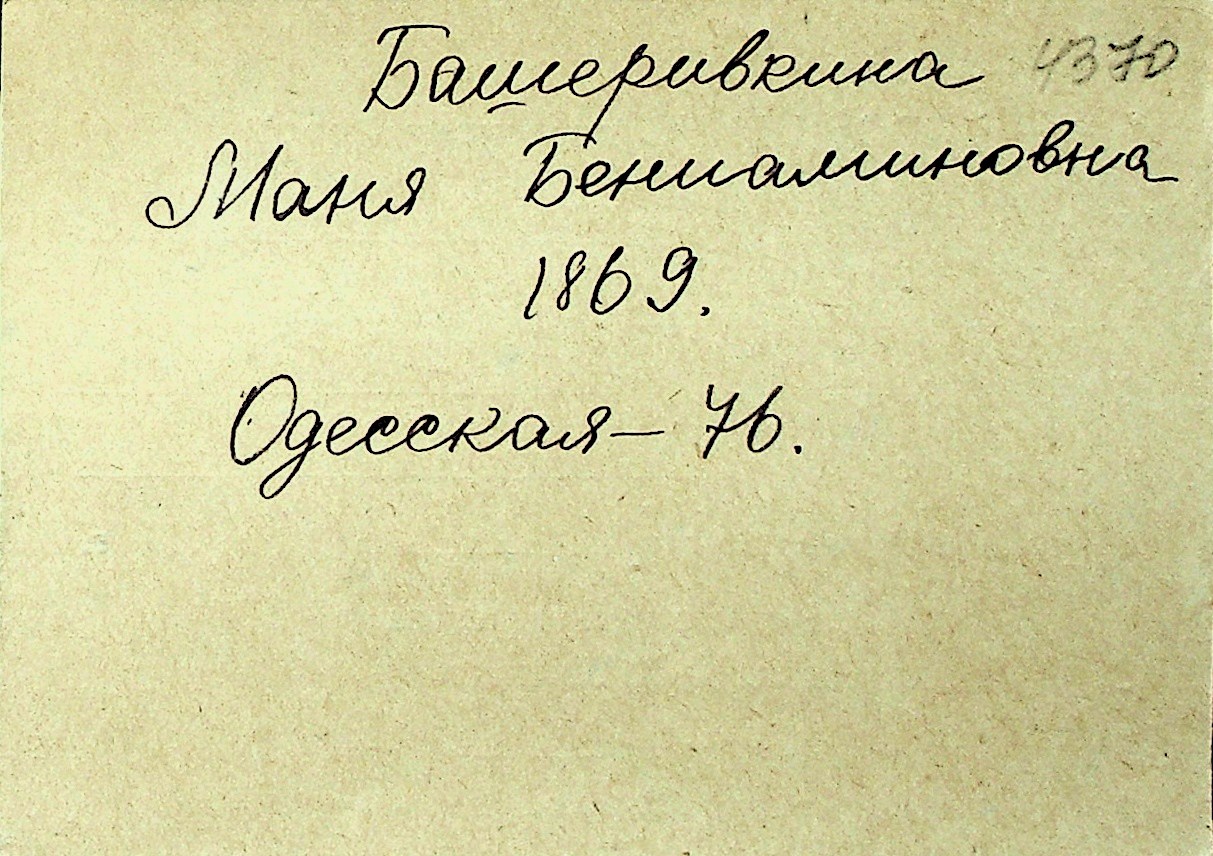 Башеривкина 4370
Маня Бениаминовна
1869.
Одесская — 76.